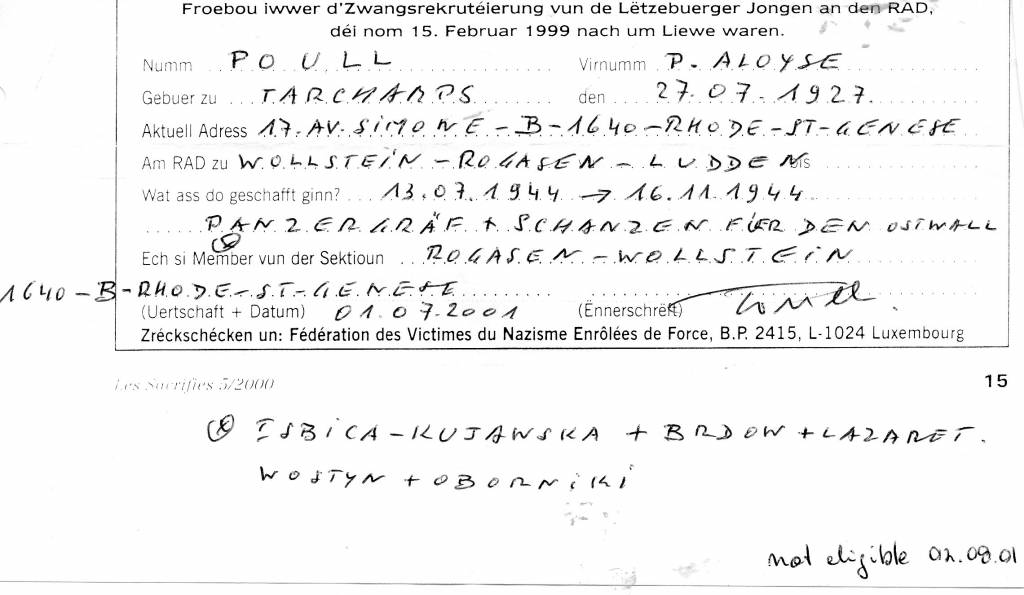 Froebou iwwer d'Zwangsrekrutéierung vun de Lëtzebuerger Jongen an den RAD,
déi nom 15. Februar 1999 nach um Liewe waren.
Numm POULL Virnumm P. ALOYSE
Gebuer zu TARCHAMPS den 27.07.1927.
Aktuell Adress 17. AV. SIMONE - B - 1640 - RHODE - ST - GENESE
Am RAD zu WOLLSTEIN - ROGASEN - LUDDEN bis
Wat ass do geschafft ginn? 13.07.1944 → 16.11.1944
PANZERGRÄF + SCHANZEN FÜR DEN OSTWALL
Ech si Member vun der Sektioun ROGASEN - WOLLSTEIN
1640 - B - RHODE - ST - GENESE
(Uertschaft + Datum) 01.07.2001 (Ënnerschrëft)
Zréckschécken un: Fédération des Victimes du Nazisme Enrôlées de Force, B.P. 2415, L-1024 Luxembourg
Les Sacrifiés 5/2000 15
ISBICA - KUJAWSKA + BRDOW + LAZARET.
WOSTYN + OBORNIKI
not eligible 02.08.01